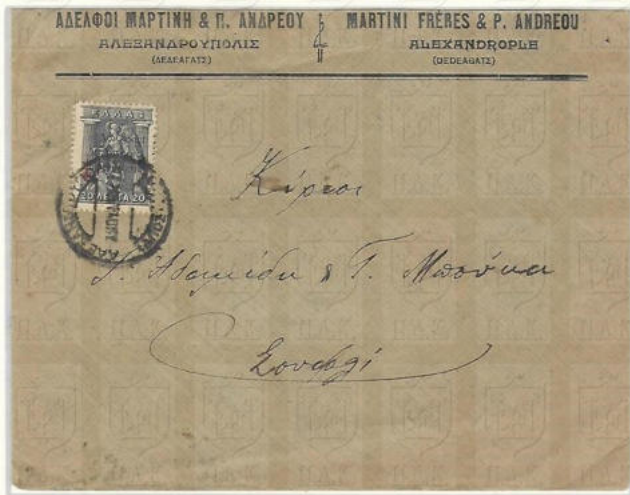 ΑΔΕΛΦΟΙ ΜΑΡΤΙΝΗ & Π. ΑΝΔΡΕΟΥ
ΑΛΕΞΑΝΔΡΟΥΠΟΛΙΣ
(ΔΕΔΕΑΓΑΤΣ)
MARTINI FRÈRES & P. ANDREOU
ALEXANDROPLE
(DEDEAGATS)
ΕΛΛΑΣ
20 ΛΕΠΤΑ 20
Κύριοι
& Γ. Μπούκα
Σουφλί